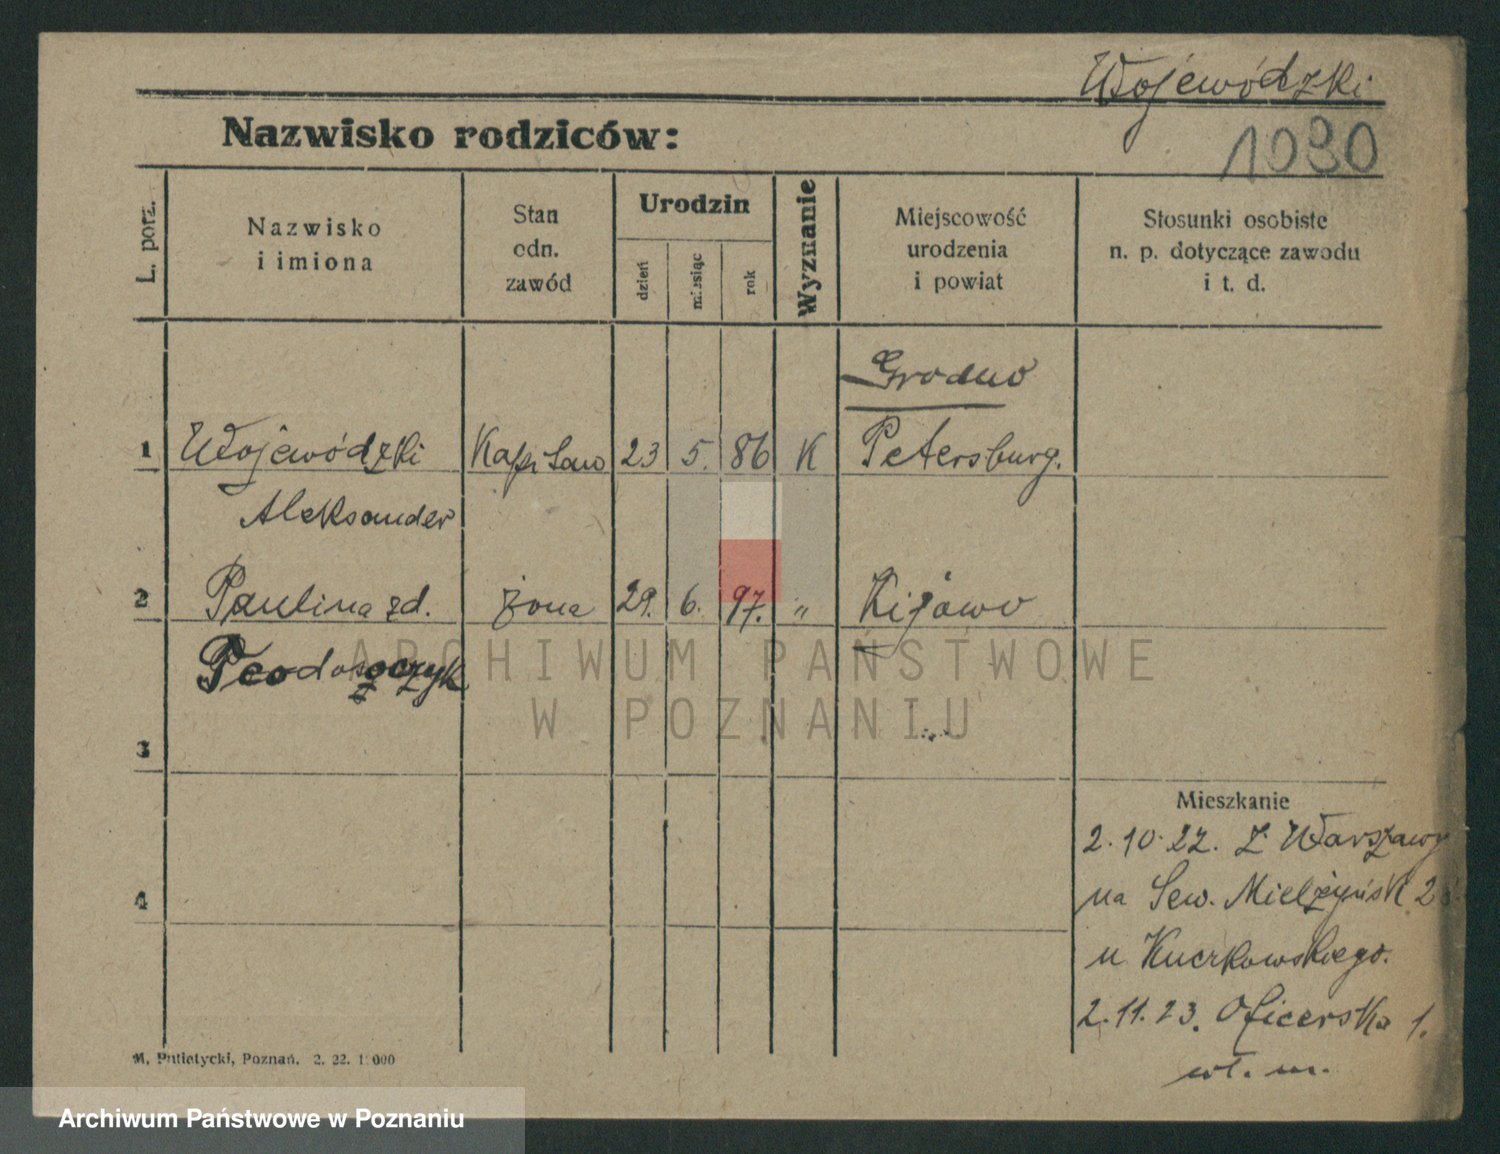 Wojewódzki
Nazwisko rodziców:
1030
L. porz.
Nazwisko
i imiona
Stan
odn.
zawód
Urodzin
dzień
miesiąc
rok
Wyznanie
Miejscowość
urodzenia
i powiat
Stosunki osobiste
n. p. dotyczące zawodu
i t. d.
Grodno
1 Wojewódzki Kapitan 23 5. 86 K Petersburg.
Aleksander
2 Paulina zd. żona 29. 6. 97. " Kijowo
ARCHIWUM PAŃSTWOWE
W POZNANIU
3
Mieszkanie
2.10.22. Z Warszawy
4
na Sew. Mielżyńsk 23
u Kuczkowskiego.
2.11.23. Oficerska 1.
wł. m.
M. Putiatycki, Poznań. 2. 22. 1 000
Archiwum Państwowe w Poznaniu